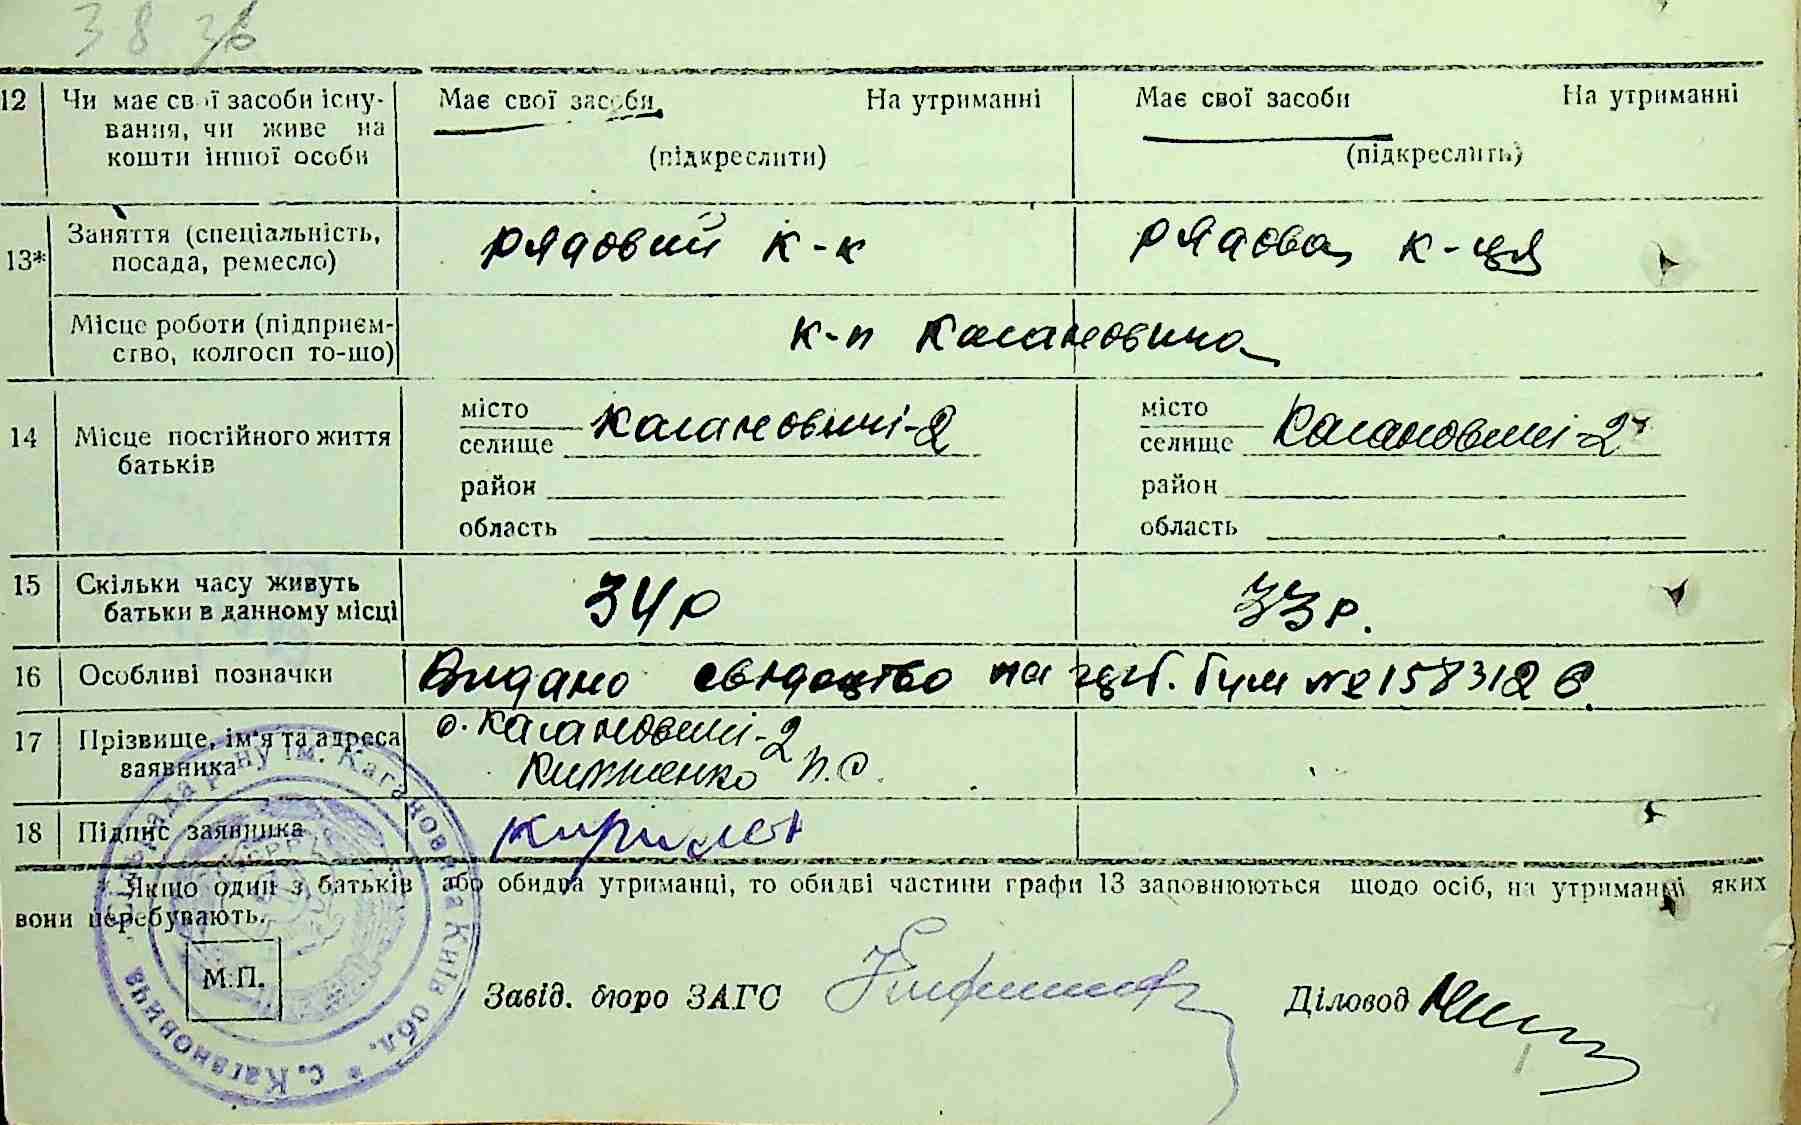 38 36
12 Чи має свої засоби існу-
вання, чи живе на
кошти іншої особи
Має свої засоби На утриманні
(підкреслити)
Має свої засоби На утриманні
(підкреслить)
13* Заняття (спеціальність,
посада, ремесло)
рядовий к-к
рядова к-ця
Місце роботи (підприєм-
ство, колгосп то-шо)
к-п Кагановича
14 Місце постійного життя
батьків
місто
селище Кагановичі-2
район
область
місто
селище Кагановичі-2
район
область
15 Скільки часу живуть
батьки в данному місці
34 р
33 р.
16 Особливі позначки
Видано свідоцтво на бум №158312
17 Прізвище, ім'я та адреса
заявника
с. Кагановичі-2
18 Підпис заявника
* Якщо один з батьків або обидва утриманці, то обидві частини графи 13 заповнюються щодо осіб, на утриманні яких
вони перебувають.
М.П.
Завід. бюро ЗАГС
Діловод
р-ну ім. Кагановича Київ обл. * с. Кагановича